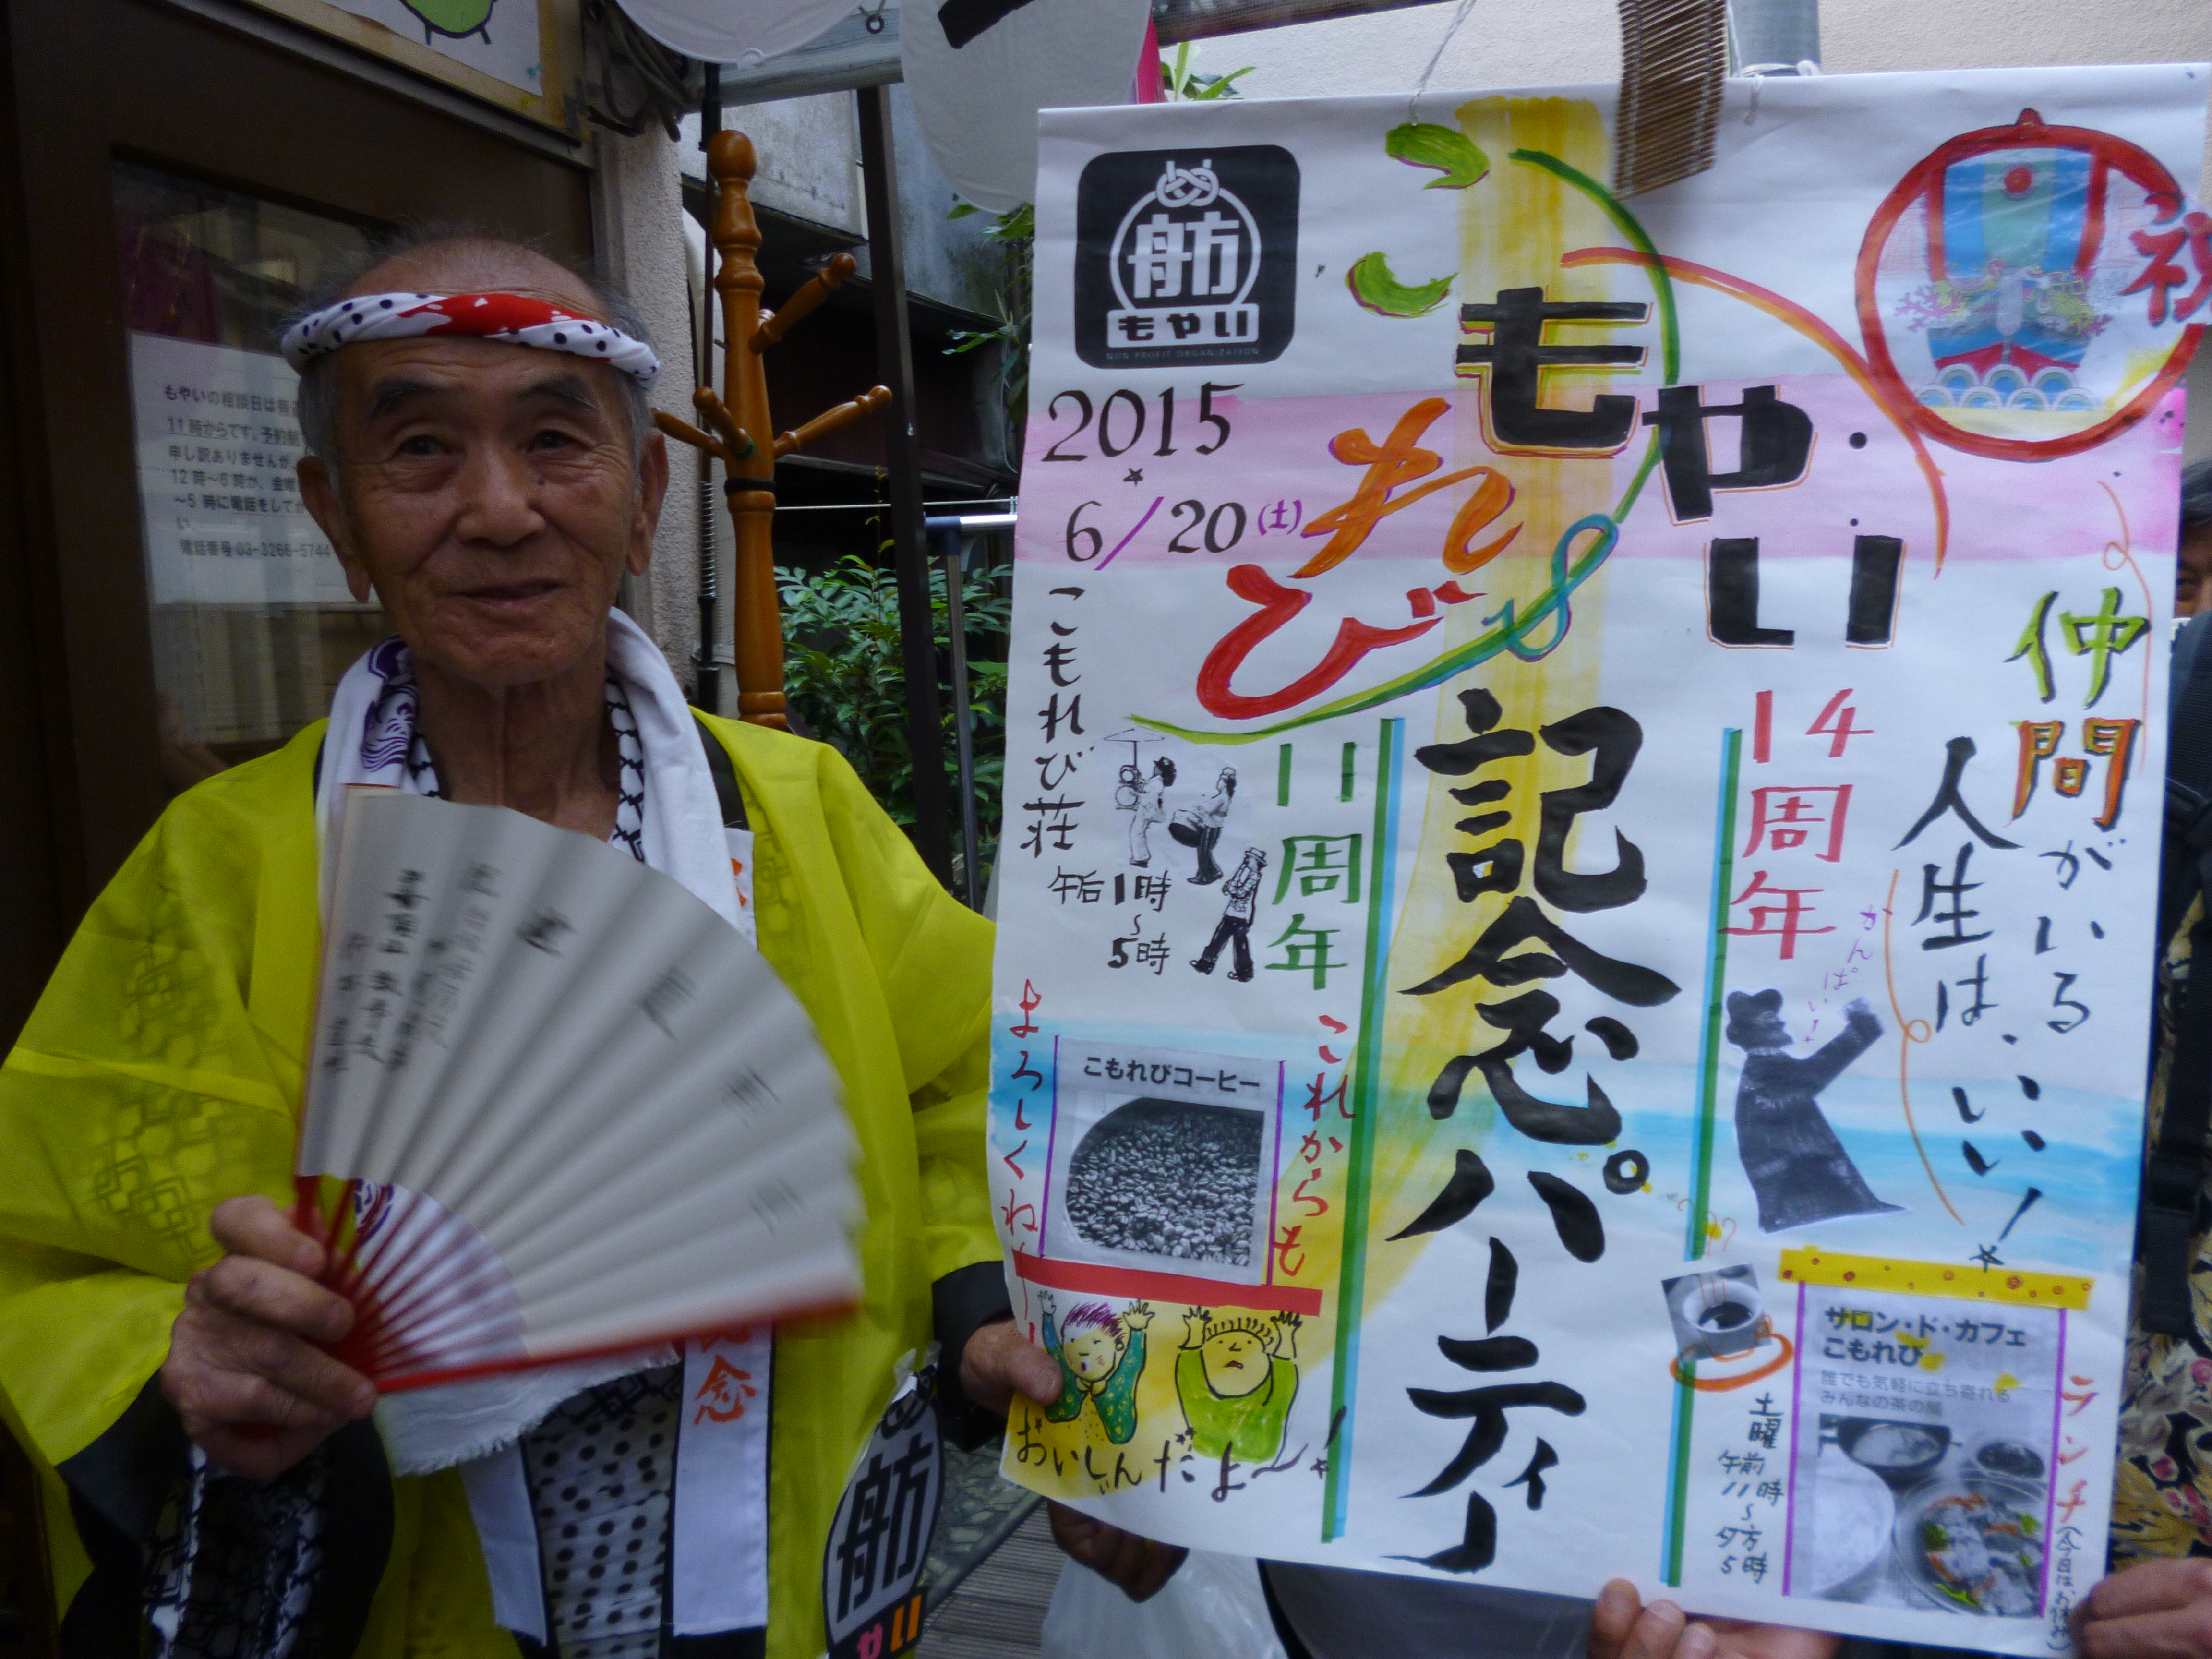 もやいの相談日は毎週
11時からです。予約制
申し訳ありませんが、
12時～6時か、金曜
～5時に電話をしてか
い。
電話番号 03-3266-5744
舫
もやい
NON PROFIT ORGANIZATION
祝
2015
6/20(土)
こもれび荘
午后1時
～
5時
こもれび
もやい
記念パーティー
14周年
11周年
仲間がいる
人生は、いい!
かんぱい!
これからも
よろしくねー!
こもれびコーヒー
おいしいんだよ～!
サロン・ド・カフェ
こもれび
誰でも気軽に立ち寄れる
みんなの茶の間
土曜
午前
11時
～
夕方
5時
ランチ(今日はお休み)
念
舫
やい